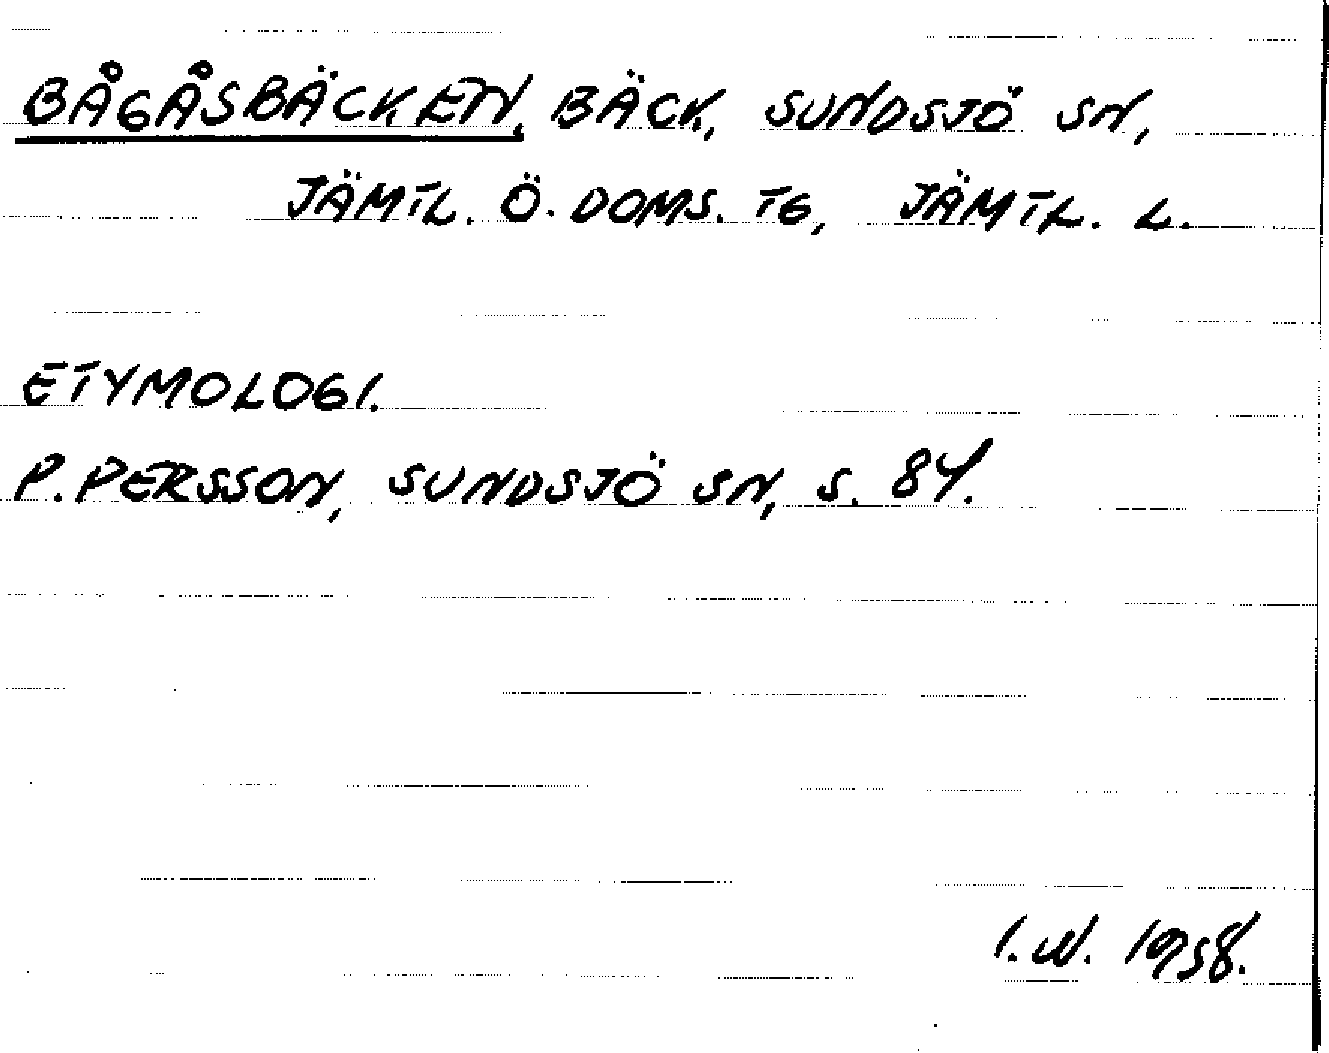 BÅGÅSBÄCKEN, BÄCK, SUNDSJÖ SN,
JÄMTL. Ö. DOMS. TG, JÄMTL. L.
ETYMOLOGI.
P. PERSSON, SUNDSJÖ SN, S. 84.
I.W. 1958.